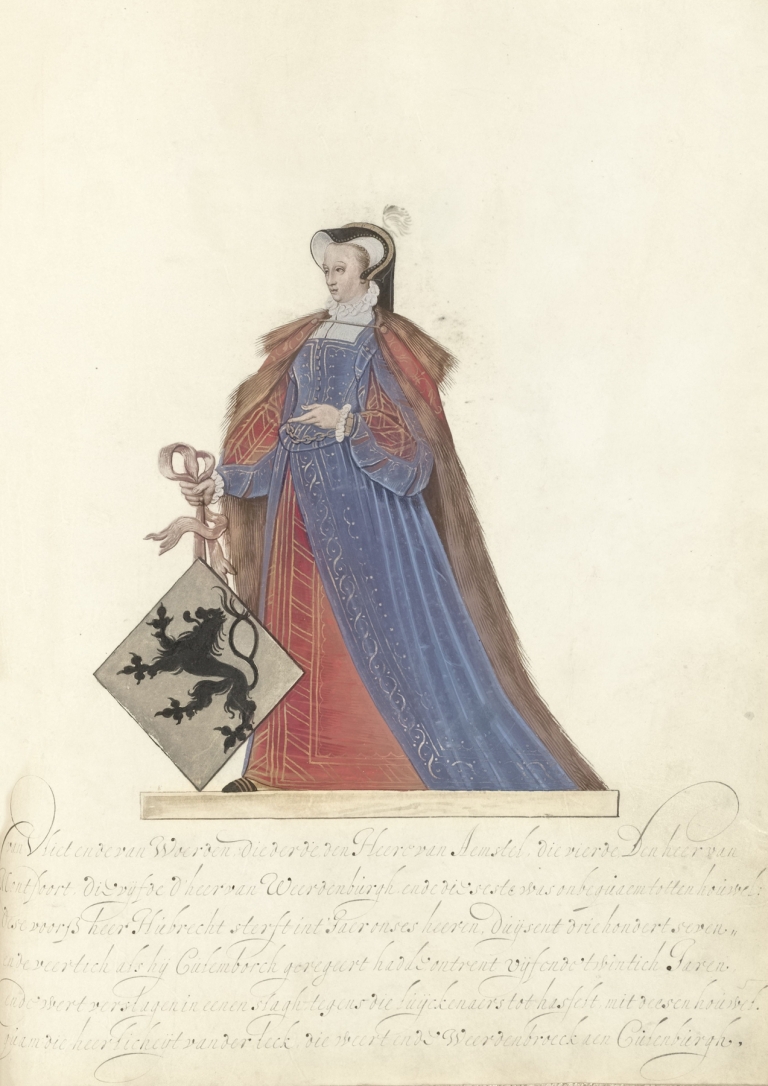 van Vliet ende van Woerden, die derde, den Heere van Aemstel, die vierde Den heer van
Montfoort, die vijfde d'heer van Weerdenburgh ende die seste was onbequaem totten houwel:
dese voorss heer Hubrecht sterft int Jaer onses heeren, duijsent driehondert seven=
ende veertich als hij Culemborch geregeert hadde ontrent vijfende twintich Jaren
ende wert verslagen in eenen slagh tegens die Luijckenaers tot hasselt mit deesen houwel.
quam die heerlicheijt van der Leck, die weert ende Weerdenbroeck aen Culenburgh.